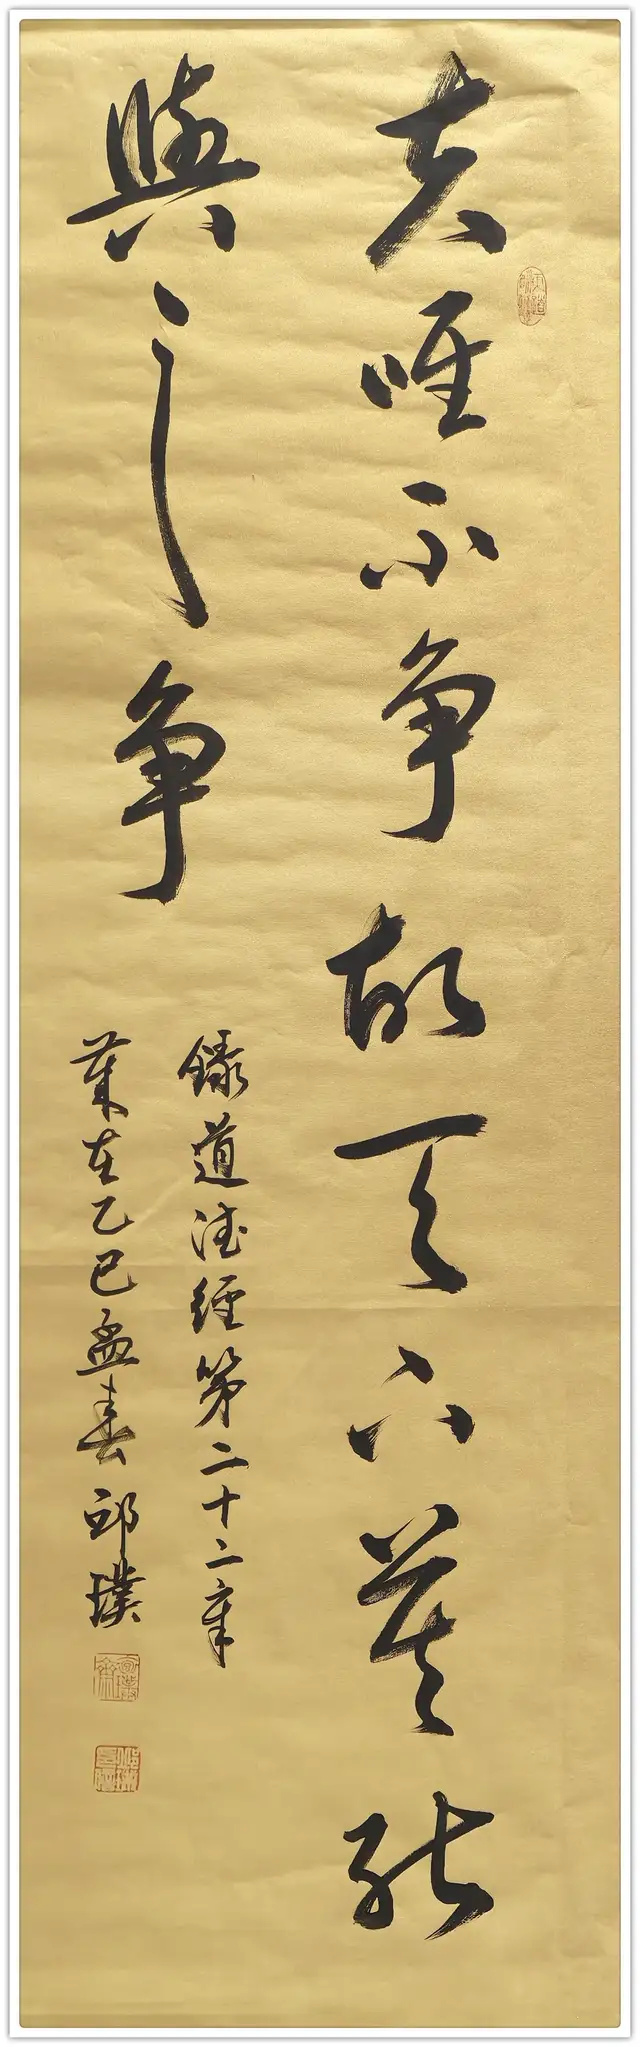 夫唯不争故天下莫能
與之争
録道德經第二十二章
歲在乙巳孟春邱璞